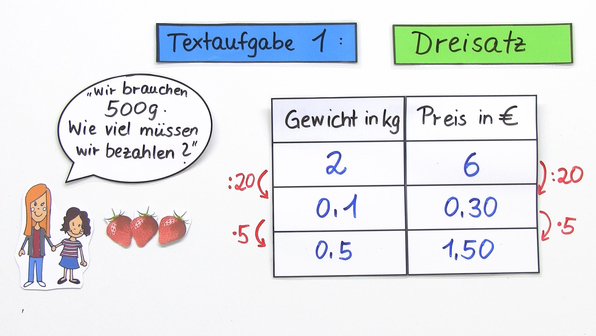 Textaufgabe 1:
Dreisatz
„Wir brauchen
500g.
Wie viel müssen
wir bezahlen?"
Gewicht in kg Preis in €
2 6
:20 :20
0,1 0,30
·5 ·5
0,5 1,50